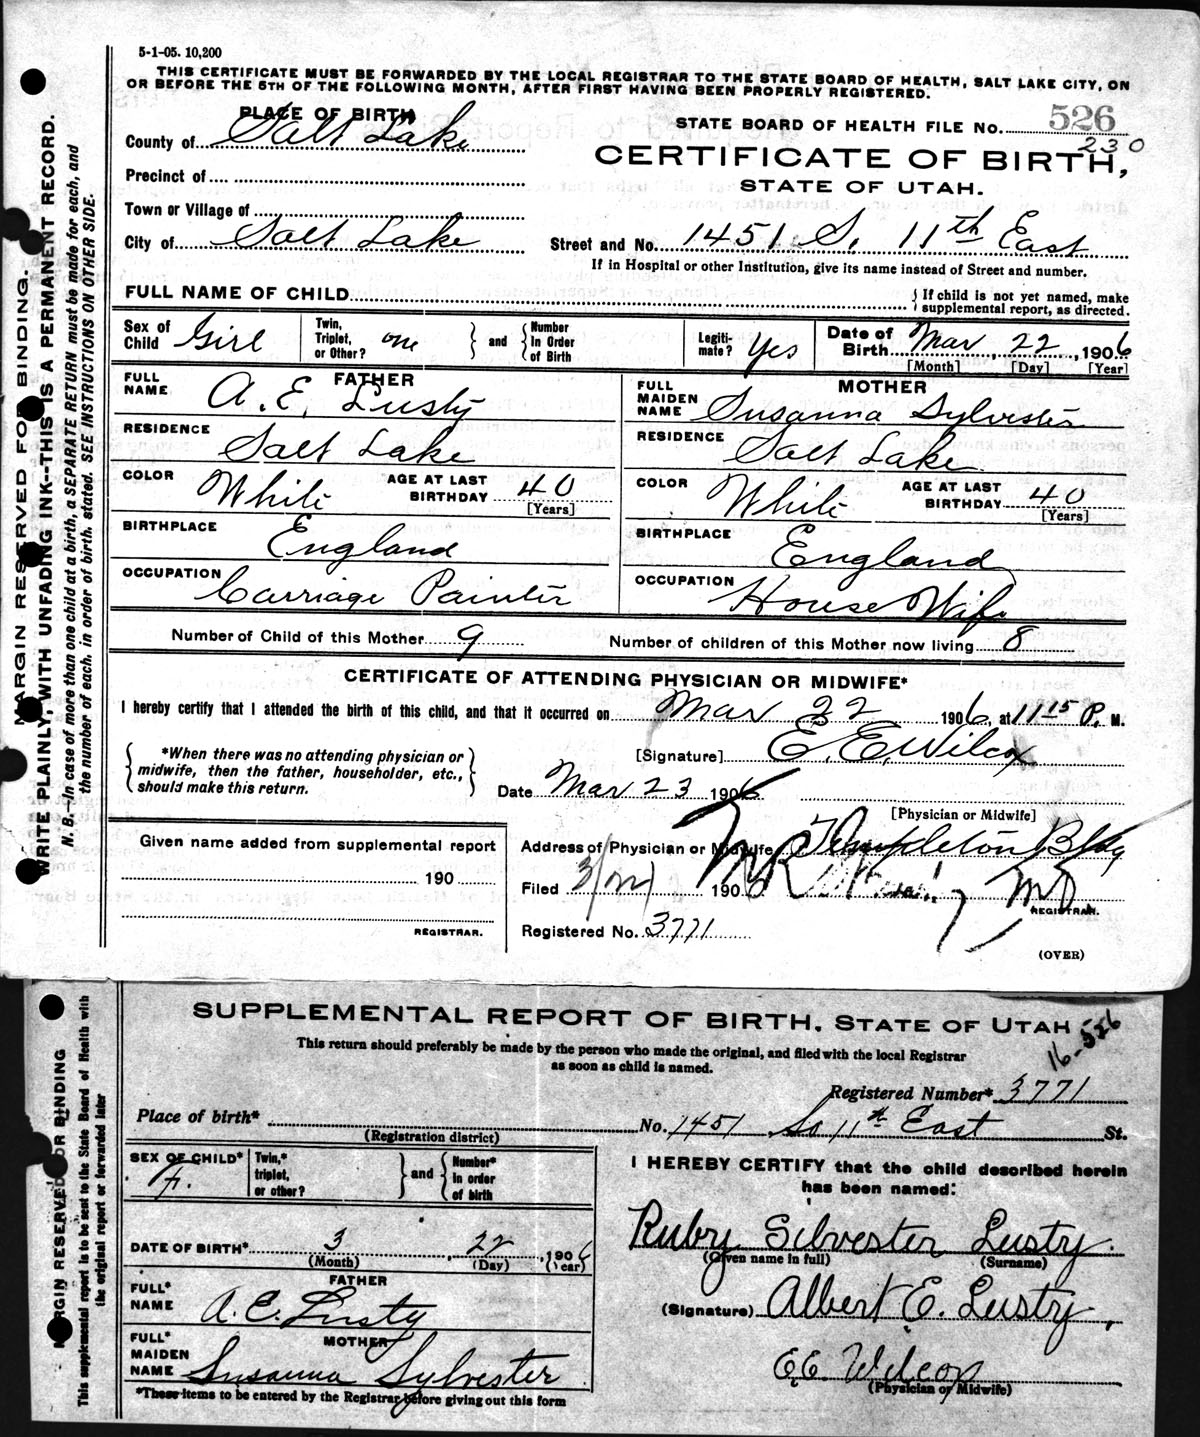 5-1-05. 10,200
THIS CERTIFICATE MUST BE FORWARDED BY THE LOCAL REGISTRAR TO THE STATE BOARD OF HEALTH, SALT LAKE CITY, ON
OR BEFORE THE 5TH OF THE FOLLOWING MONTH, AFTER FIRST HAVING BEEN PROPERLY REGISTERED.
PLACE OF BIRTH
STATE BOARD OF HEALTH FILE NO. 526
230
County of Salt Lake
CERTIFICATE OF BIRTH,
STATE OF UTAH.
Precinct of
Town or Village of
City of Salt Lake
Street and No. 1451 S. 11th East
If in Hospital or other Institution, give its name instead of Street and number.
FULL NAME OF CHILD
{ If child is not yet named, make
supplemental report, as directed.
Sex of Child Girl
Twin, Triplet, or Other? one } and { Number In Order of Birth
Legiti-mate? Yes
Date of Birth Mar, 22, 1906
[Month] [Day] [Year]
FATHER
FULL NAME A. E. Lusty
RESIDENCE Salt Lake
COLOR White
AGE AT LAST BIRTHDAY 40
[Years]
BIRTHPLACE England
OCCUPATION Carriage Painter
MOTHER
FULL MAIDEN NAME Susanna Sylvester
RESIDENCE Salt Lake
COLOR White
AGE AT LAST BIRTHDAY 40
[Years]
BIRTHPLACE England
OCCUPATION House Wife
Number of Child of this Mother 9
Number of children of this Mother now living 8
CERTIFICATE OF ATTENDING PHYSICIAN OR MIDWIFE*
I hereby certify that I attended the birth of this child, and that it occurred on Mar 22 1906, at 11 15 P. M.
{ *When there was no attending physician or
midwife, then the father, householder, etc.,
should make this return. }
[Signature] E. E. Wilcox
Date Mar 23 1906
[Physician or Midwife]
Given name added from supplemental report
190
REGISTRAR.
Address of Physician or Midwife Templeton Bldg
Filed 190
M.D.
REGISTRAR.
Registered No. 3771
(OVER)
MARGIN RESERVED FOR BINDING.
WRITE PLAINLY, WITH UNFADING INK--THIS IS A PERMANENT RECORD.
N. B.--In case of more than one child at a birth, a SEPARATE RETURN must be made for each, and
the number of each, in order of birth, stated. SEE INSTRUCTIONS ON OTHER SIDE.
SUPPLEMENTAL REPORT OF BIRTH. STATE OF UTAH
16-526
This return should preferably be made by the person who made the original, and filed with the local Registrar
as soon as child is named.
Registered Number* 3771
Place of birth*
(Registration district)
No. 1451 So 11th East St.
SEX OF CHILD* F.
Twin,* triplet, or other? } and { Number* In order of birth
DATE OF BIRTH* 3, 22, 1906
(Month) (Day) (Year)
FATHER
FULL* NAME A. E. Lusty
MOTHER
FULL* MAIDEN NAME Susanna Sylvester
*These items to be entered by the Registrar before giving out this form
I HEREBY CERTIFY that the child described herein
has been named:
Ruby Silvester Lusty.
(Given name in full) (Surname)
(Signature) Albert E. Lusty,
E.E. Wilcox
(Physician or Midwife)
MARGIN RESERVED FOR BINDING
This supplemental report is to be sent to the State Board of Health with
the original report or forwarded later